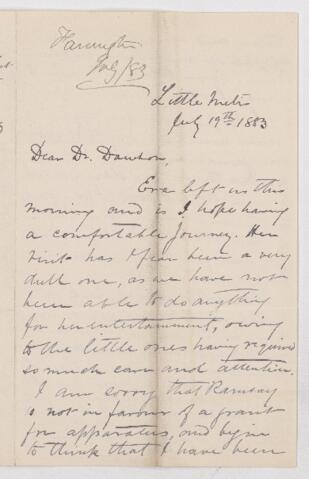 Harrington
July/83
Little Metis
July 19th 1883
Dear Dr. Dawson,
Eva left us this
morning and is I hope having
a comfortable journey. Her
visit has I fear been a very
dull one, as we have not
been able to do anything
for her entertainment, owing
to the little ones having required
so much care and attention.
I am sorry that Ramsay
is not in favour of a grant
for apparatus, and begin
to think that I have been